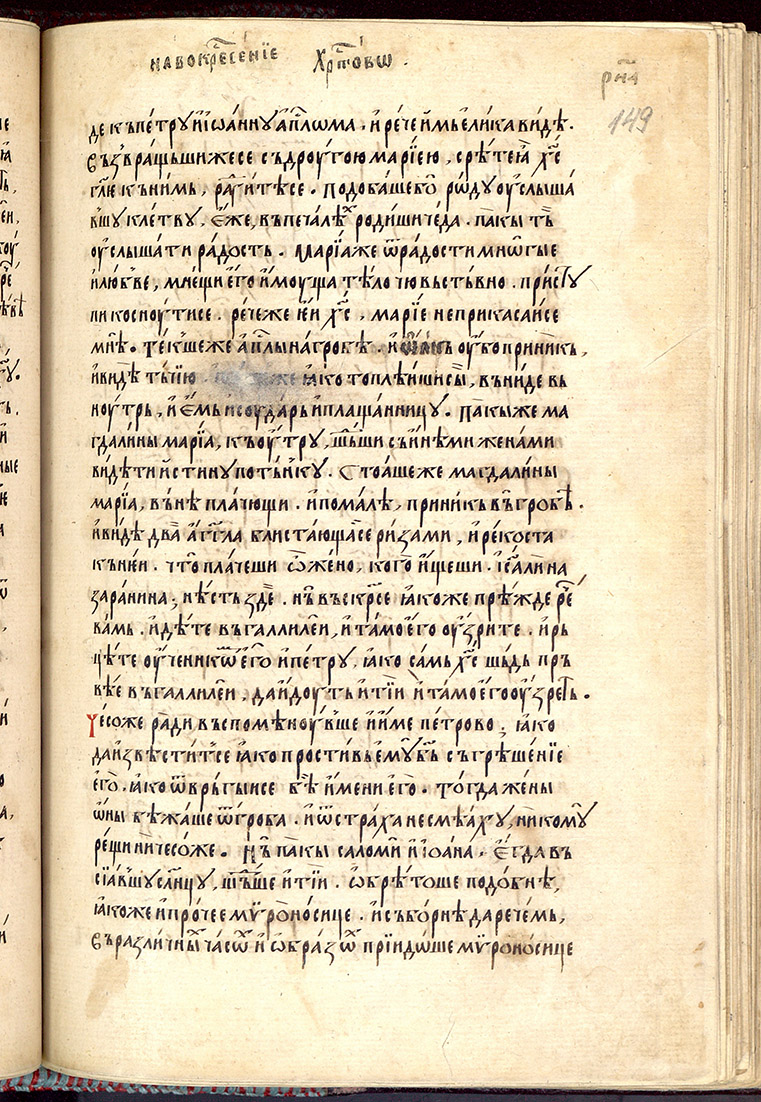 на вокрⷭ҇есенїе Хрⷭ҇товѡ .
рн҃а
149
де къпе́трꙋ и҆ їѡа́ннꙋ а҆пⷭ҇лѡма . и҆ рече и҆̀мь є҆ли́ка ви́дѣ .
Въз̾вра́щьшижесе съ дрꙋго́ю марїе́ю , срѣ́те ꙗ҆̀ хⷭ҇с
гл҃ѥ къни́мь , ра́дꙋитѣсе . подоба́ше бо рѡ́дꙋ ѹ҆слы́ша
вшꙋ кле́твꙋ , є҆́же , въ печа́лѣⷯ роди́ши че́да . па́кы тъ̀
ѹ҆слы́шати ра́дость . марїа́ же ѿ ра́дости мнѡ́гые
и҆ лю́бве , мне́щи є҆го̀ и҆моу́ща тѣ́ло чювьсть́вно . присⷮꙋ
пи коснꙋ́тисе . рече́же ѥ҆́и хⷭ҇с , марі́е не прикаса́исе
мнѣ̀ . те́кꙋше же а҆пⷭ҇лы на гро́бь . и҆ ѹ҆́бо прини́кь ,
и҆ ви́дѣ тькї́ю же ꙗ҆́ко то́плѣиши сы̀ , въни́де вь
нꙋ́трь , и҆ є҆́мь и҆ сѹда́рь и҆ плаща́ницꙋ . па́кы же ма
гдали́ны марї́а , къ ѹ҆́трꙋ , шь́дши съ и҆нѣ́ми жена́ми
ви́дѣти и҆́стинꙋ по тъ́нкꙋ . Стоа́ше же магдали́ны
марї́а , вънѣ̀ пла́чющи . и҆ пома́лѣ , прини́кь въ гро́бь .
и҆ ви́дѣ два̀ а҆́гг҃ла блиста́ющасе ри́зами , и҆ реко́ста
къ нѥ́и . что̀ пла́чеши ѽ же́но , кого̀ и҆́щеши . і҆сⷭ҇а ли на
зара́нина ; нѣ́сть здѐ . нъ̀ въскрⷭ҇се ꙗ҆́коже прѣ́жде рѐⷱ
ва́мь . и҆дѣ́те въ галлиле́и , и҆ та́мо є҆го̀ ѹ҆́зрите . и҆ рь
цѣ́те ѹ҆ченикѡ́мь є҆го̀ и҆ пе́трꙋ , ꙗ҆́ко са́мь хⷭ҇с шь́дь пръ
вѣ́е въ галлиле́и , да и҆дꙋ́ть и҆ ті́и и҆ та́мо є҆го̀ ѹ҆́зреть .
Чесо́же ра́ди въспомѣнꙋ́вше и҆ и҆́ме пе́трово ; ꙗ҆́ко
да и҆звѣ́ститсе ꙗ҆́ко прости́вь є҆мꙋ̀ бг҃ъ съгрѣше́нїе
є҆го̀ . ꙗ҆́ко ѿврь́гьисе бж҃їе и҆́мени є҆го̀ . то́гда же́ны
ѡ҆́ны бѣжа́ше ѿ гро́ба . и҆ ѿ стра́ха не смѣа́хꙋ , ни комꙋ̀
рещѝ ничесо́же . Нъ̀ па́кы саломи́и и҆ їѡа́на . є҆гда̀ въ
сїа́вшꙋ слн҃цꙋ , шь́дше и҆ ті́и . ѡ҆брѣ́тоше подо́бнѣ ,
ꙗ҆́коже и҆ про́чее мѷроно́сице . и҆ събо́рнѣ да рече́мь ,
Въ разли́чныⷯ часѡⷯ и҆ ѻ҆бразѡⷯ прїидѡ́ше мѷроно́сице